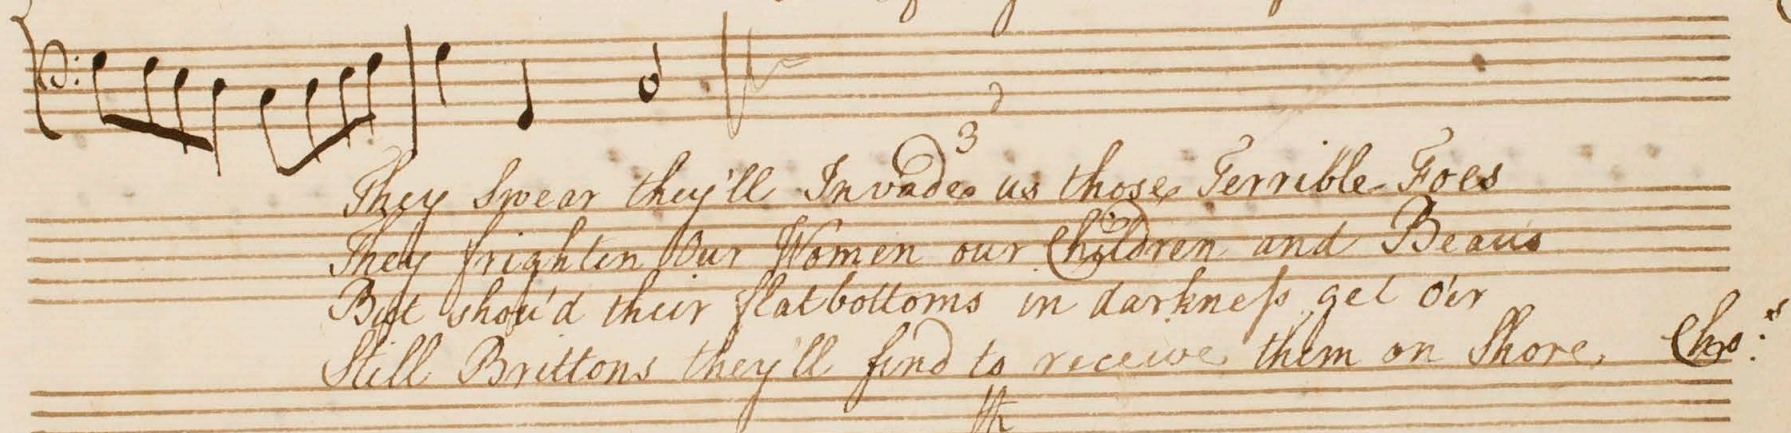 3
They Swear they'll Invade us those Terrible Foes
They frighten Our Women our Children and Beaus
But shou'd their flatbottoms in darkneſs get o'er
Still Brittons they'll find to receive them on Shore. Cho:s